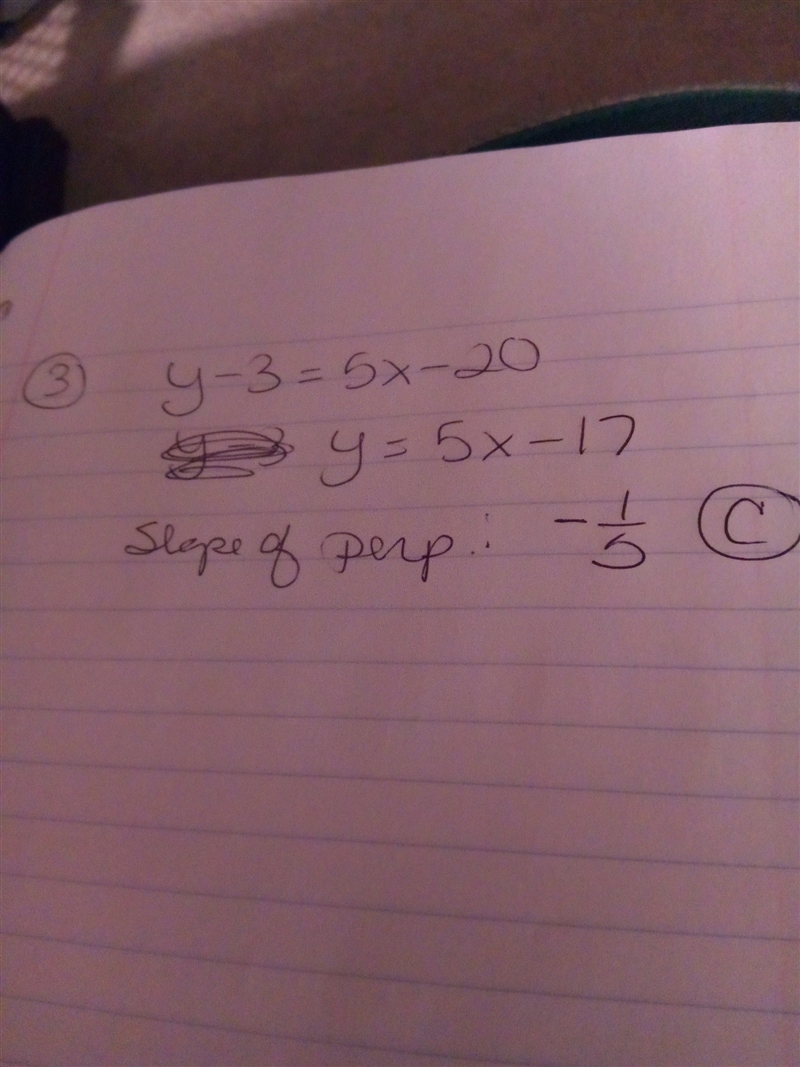 ③ y-3=5x-20
y=5x-17
Slope of perp.: -1/5 Ⓒ